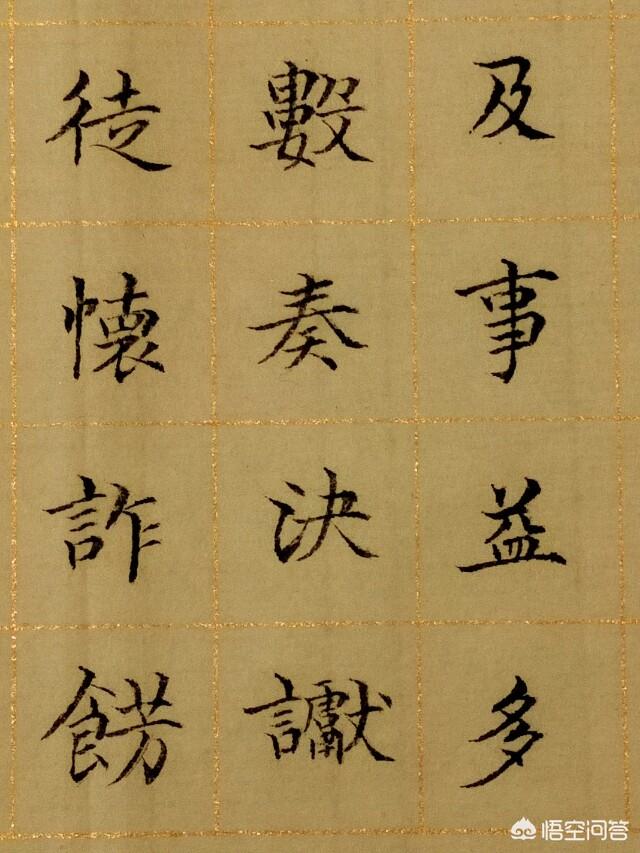 及事益多
數奏決讞
徒懷詐餝
悟空问答